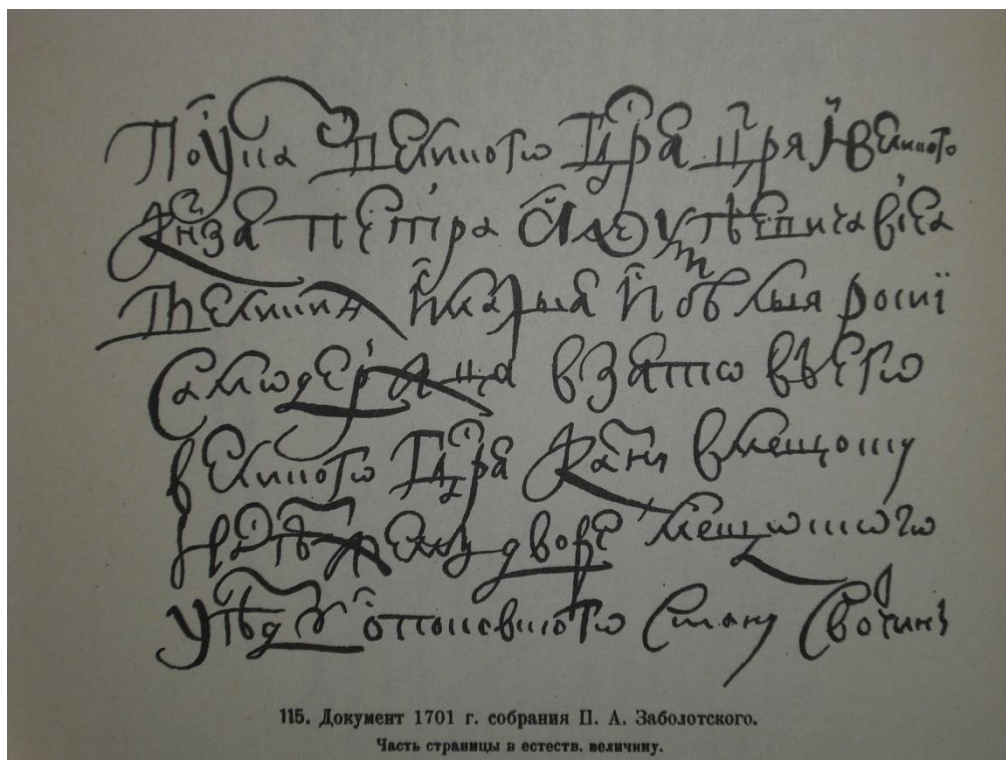 По указу великого гдря цря и великого
кнзя петра алеѯѣевича всеа
великия и малыя и бѣлыя росиї
самодержца взято в его
великого гдря казну в мещоску
дворе мещоского
уѣзду опаковского стану с вотчины
115. Документ 1701 г. собрания П. А. Заболотского.
Часть страницы в естеств. величину.